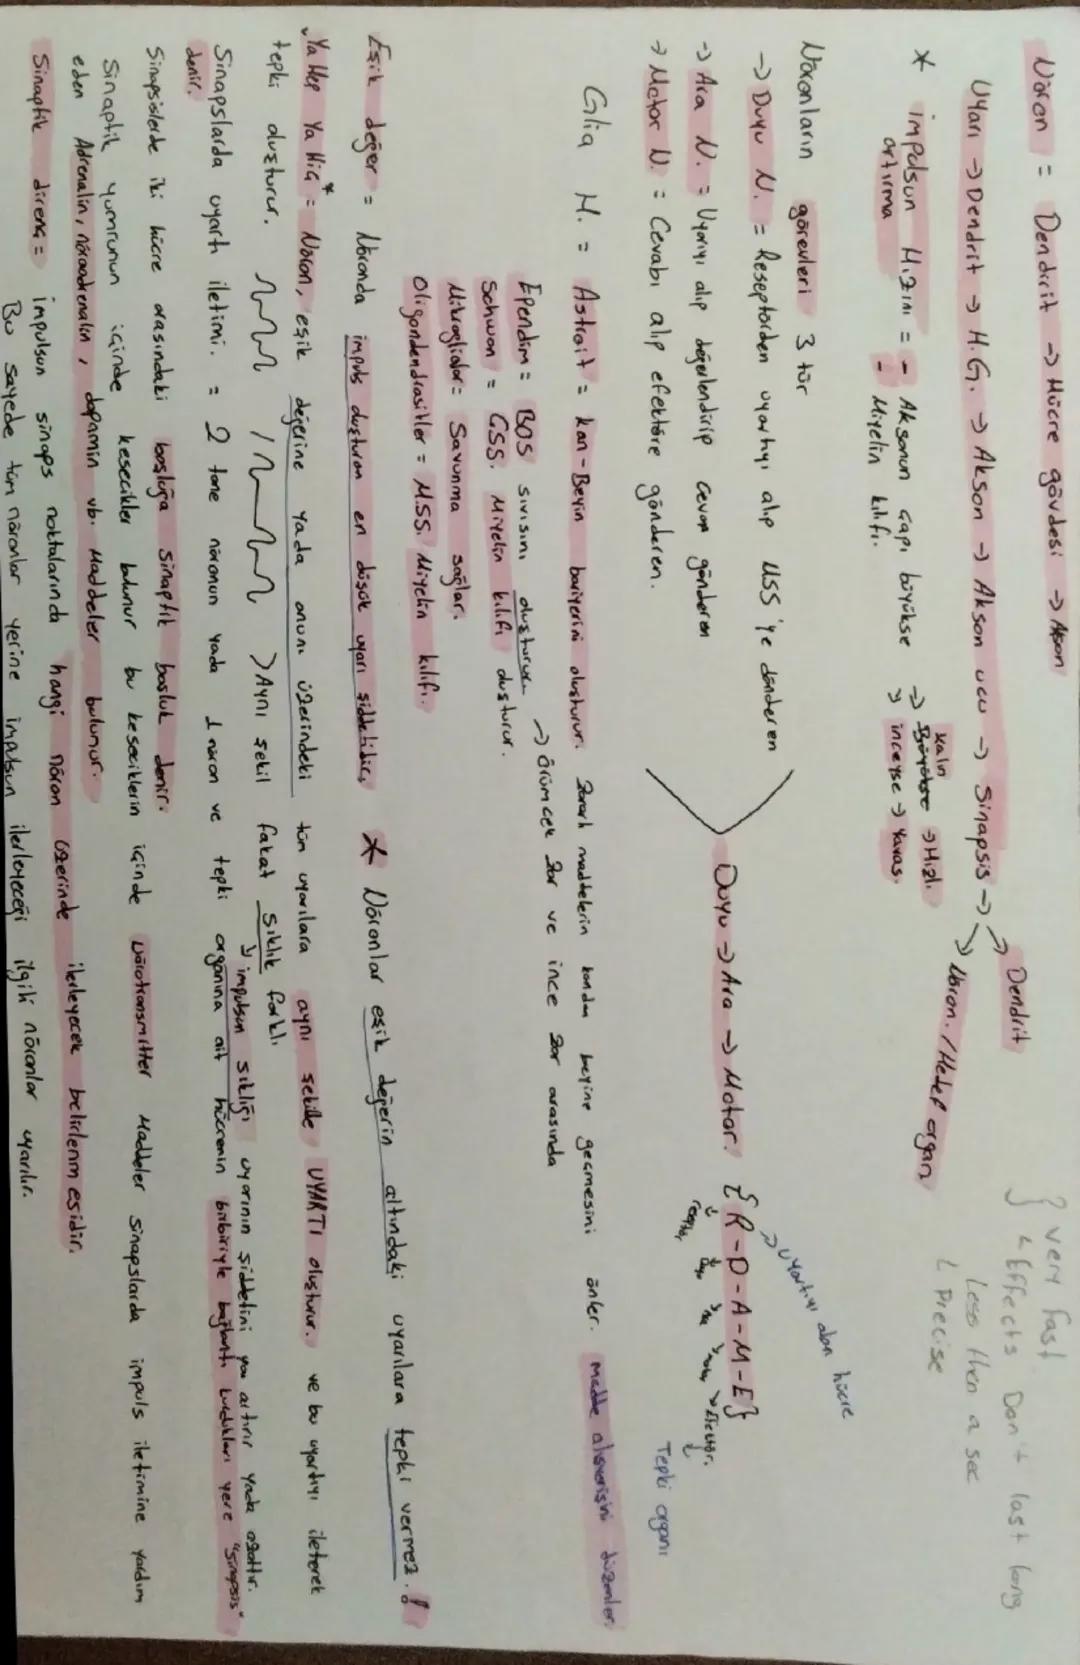 Nöron = Dendirit → Hücre gövdesi → Akson
} very fast
Effects Don't last long
Less then a sec
Precise
Uyarı → Dendrit → H.G. → Akson → Akson ucu → Sinapsis →
→ Dendrit
→ Nöron. / Hedef organ
* İmpulsun Hızını artırma = - Aksonun çapı büyükse → kalın → Hızlı.
→ inceyse → Yavaş.
- Miyelin kılıfı.
Nöronların görevleri 3 tür
→ Duyu N. = Reseptörden uyartıyı alıp MSS'ye dönderen
→ Ara N. = Uyarıyı alıp değerlendirip cevap gönderen
→ Motor N. = Cevabı alıp efektöre gönderen.
Duyu → Ara → Motor.
{R-D-A-M-E}
→ uyartıyı alan hücre
Efektör.
Tepki organı
Glia H. = Astroit = kan-Beyin bariyerini oluşturur. Zararlı maddelerin kandan beyine geçmesini önler. madde alışverişini düzenler.
Ependim = BOS sıvısını oluşturur → Örümcek zar ve ince zar arasında
Schwan = ÇSS. Miyelin kılıfı oluşturur.
Mikroglialar = Savunma sağlar.
Oligondendrasitler = M.SS. Miyelin kılıfı.
Eşik değer = Nöronda impuls oluşturan en düşük uyarı şiddetidir.
* Nöronlar eşik değerin altındaki uyarılara tepki vermez.!
Ya Hep Ya Hiç* = Nöron, eşik değerine yada onun üzerindeki tüm uyarılara aynı şekilde UYARTI oluşturur. ve bu uyartıyı ileterek
tepki oluşturur.
> Aynı şekil fakat sıklık farklı
↓ impulsun sıklığı uyarının şiddetini ya artırır yada azaltır.
Sinapslarda uyartı iletimi. = 2 tane nöronun yada 1 nöron ve tepki organına ait hücrenin birbiriyle bağlantı kurdukları yere "sinapsis"
denir.
Sinapsislerde iki hücre arasındaki boşluğa sinaptik boşluk denir.
Sinaptik yumrunun içinde kesecikler bulunur bu keseciklerin içinde Nörotransmitter Maddeler sinapslarda impuls iletimine yardım
eden Adrenalin, nöroadrenalin, dopamin vb. Maddeler bulunur.
Sinaptik direnç = impulsun sinaps noktalarında hangi nöron üzerinde ilerleyecek belirlenmesidir.
Bu sayede tüm nöronlar yerine impulsun ilerleyeceği ilgili nöronlar uyarılır.